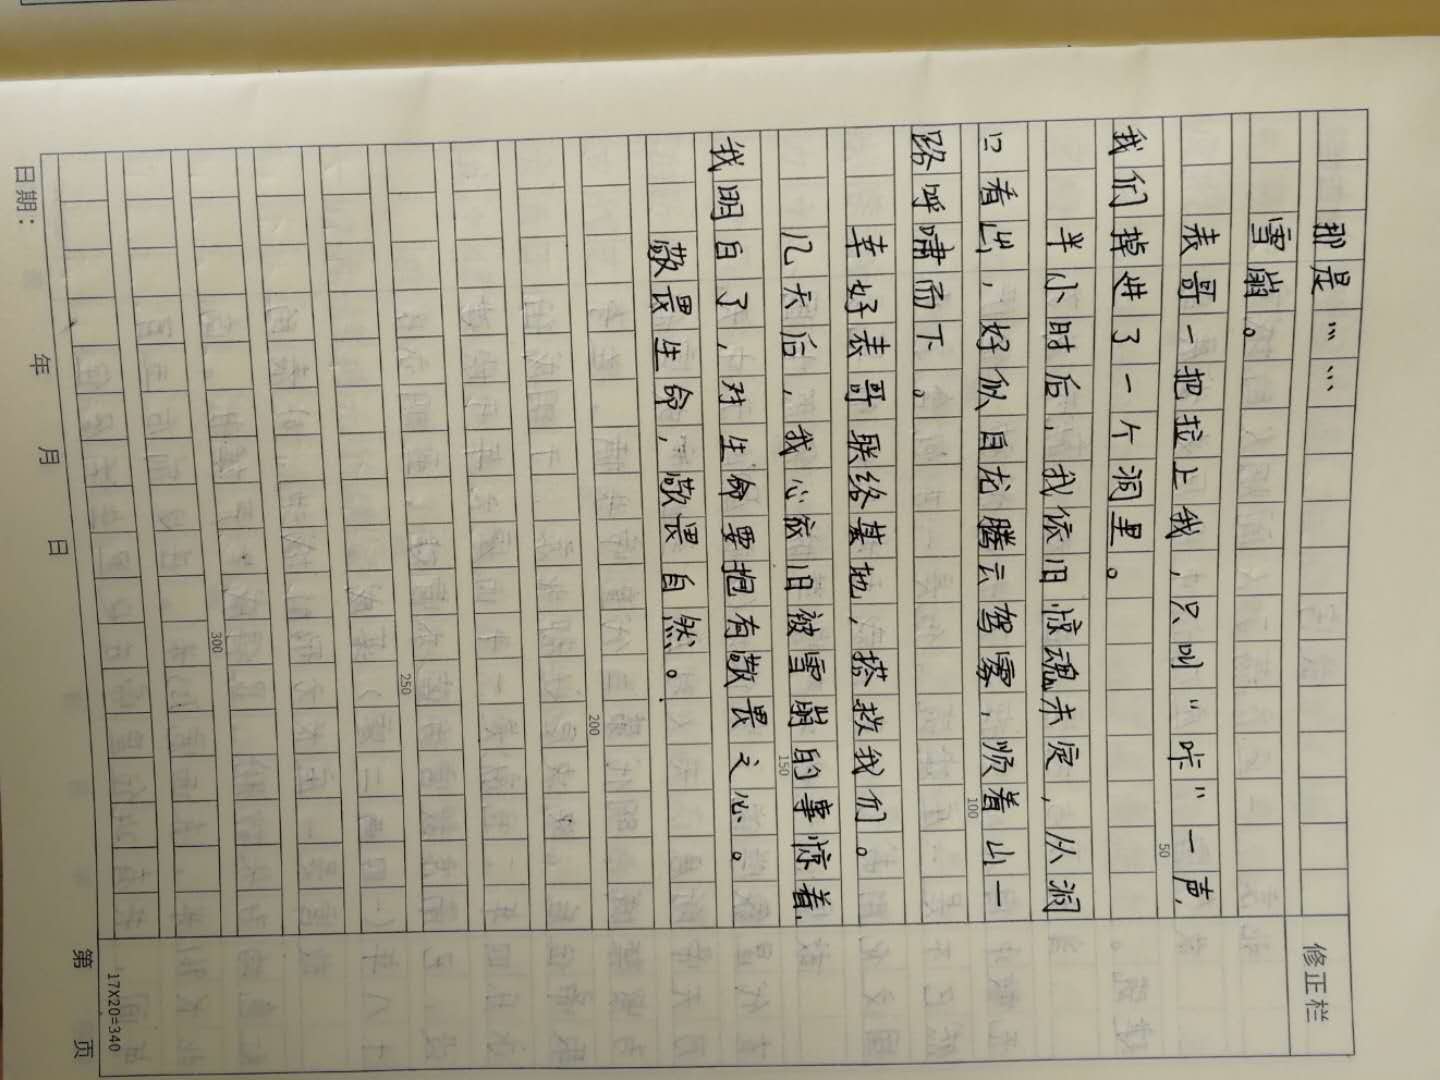 修正栏
那是……
雪崩。
表哥一把拉上我，只叫“咔”一声，
我们掉进了一个洞里。
50
半小时后，我依旧惊魂未定，从洞
口看出，好似白龙腾云驾雾，顺着山一
100
路呼啸而下。
幸好表哥联络基地，搭救我们。
几天后，我心依旧被雪崩的事惊着，
150
我明白了，对生命要抱有敬畏之心。
敬畏生命，敬畏自然。
200
250
300
17X20=340
日期： 年 月 日 第 页